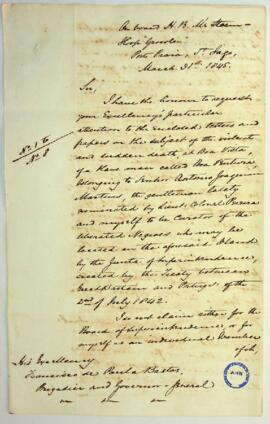 On board H. B. M. Steam
Sloop Growler
Porto Praia, St. Iago,
March 31st 1845.
Sir,
I have the honour to request
your Excellency's particular
attention to the enclosed letters and
papers on the subject of the violent
and sudden death, at Boa Vista
of a slave man called Boa Ventura,
belonging to Senhor Antonio Joaquim
Martins, the gentleman lately
nominated by Lieut. Colonel
and myself to be Curator of the
liberated Negroes who may be
located in the aforesaid Island
by the Junta of Superintendence,
created by the Treaty between
Great Britain and Portugal of the
2nd of July 1842.
I do not claim either for the
Board of Superintendence, or for
myself as an individual Member
of it,
No. 1 to
No. 8
His Excellency
Francisco de Paula Bastos,
Brigadier and Governor-General
AHN